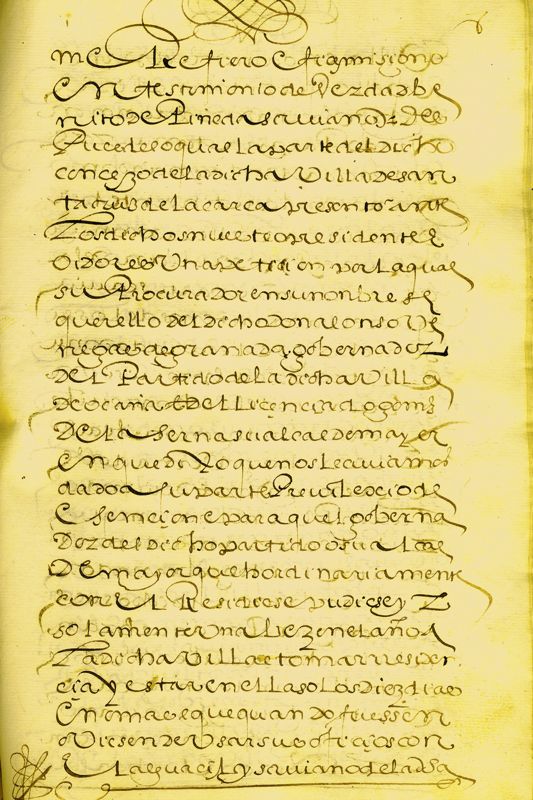 me Refiero E fizo mi signo
En testimonio de Verdad be
nito de Pineda scriuano Despu
Pues de lo qual La parte del Dicho
conçexo de la dicha Villa de san
ta cruz de la çarça presento ante
Los dichos nuestro presidente E
Oidores Una petiçion por La qual
su Procurador en su nonbre se
querello del dicho don alonso Ve
negas de granada gobernador
del Partido de la dicha Villa
de ocaña E del Liçençiado gomez
De la serna su alcalde mayor
En que dixo que nos Le auiamos
dado a su parte Preuilexio de
Esençion e para que El goberna
Dor del Dicho partido o su alcalde
mayor que hordinariamente
con El Residiese pudiese yr
solamente Una bez en el año A
La dicha Villa e tomar residen
çia y estar en ella solos diez dias
En no mas e que quando fuessen
o Viesen de Usar sus ofiçios con
El alguaçil y scriuano de la dha